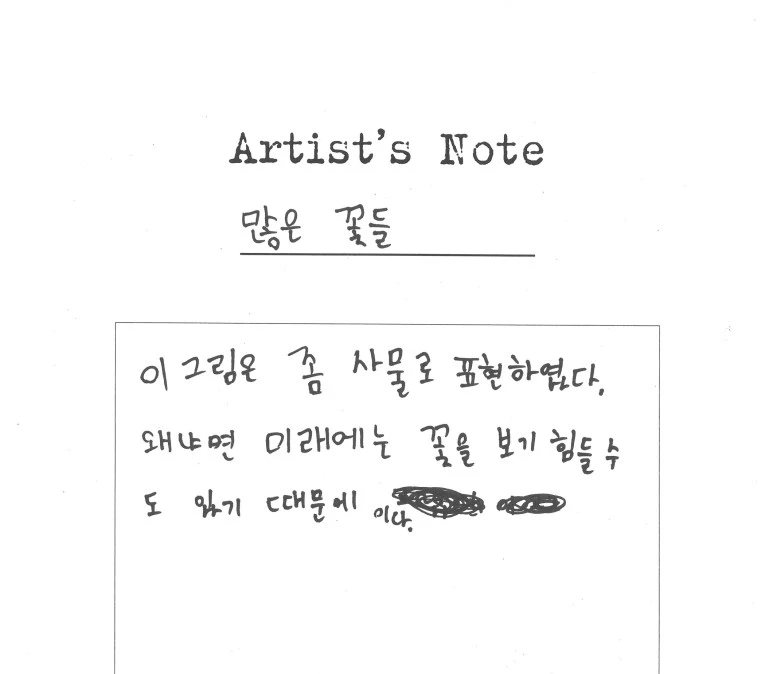 Artist's Note
많은 꽃들
이 그림은 좀 사물로 표현하였다.
왜냐면 미래에는 꽃을 보기 힘들 수
도 있기 때문에 이다.